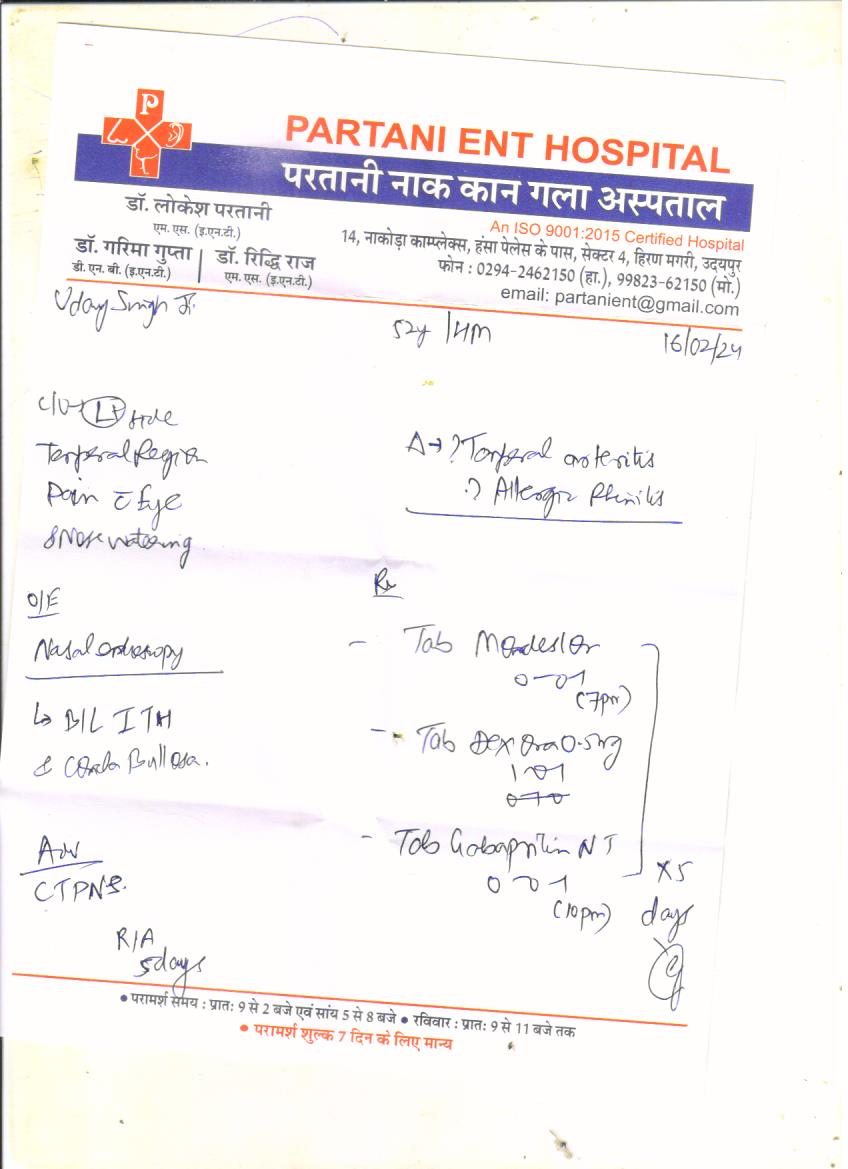 P
PARTANI ENT HOSPITAL
परतानी नाक कान गला अस्पताल
An ISO 9001:2015 Certified Hospital
डॉ. लोकेश परतानी
एम. एस. (इ.एन.टी.)
डॉ. गरिमा गुप्ता
डी. एन. बी. (इ.एन.टी.)
डॉ. रिद्धि राज
एम. एस. (इ.एन.टी.)
14, नाकोड़ा काम्प्लेक्स, हंसा पेलेस के पास, सेक्टर 4, हिरण मगरी, उदयपुर
फोन : 0294-2462150 (हा.), 99823-62150 (मो.)
email: partanient@gmail.com
Uday Singh Jr.
52y /M
16/02/24
C/O Lt side
Temporal Region
Pain c̄ Eye
& Nose watering
Δ→ ? Temporal arteritis
? Allergic Rhinitis
O/E
Nasal endoscopy
↳ B/L ITH
& Concha Bullosa.
Adv
CTPNS.
R/A
5days
Rx
- Tab Mondeslor
0-0-1
(7pm)
- Tab Dexona 0.5mg
1-0-1
- Tab Gabapitin NT
0-0-1
(10pm)
x5
days
• परामर्श समय : प्रातः 9 से 2 बजे एवं सांय 5 से 8 बजे • रविवार : प्रातः 9 से 11 बजे तक
• परामर्श शुल्क 7 दिन के लिए मान्य